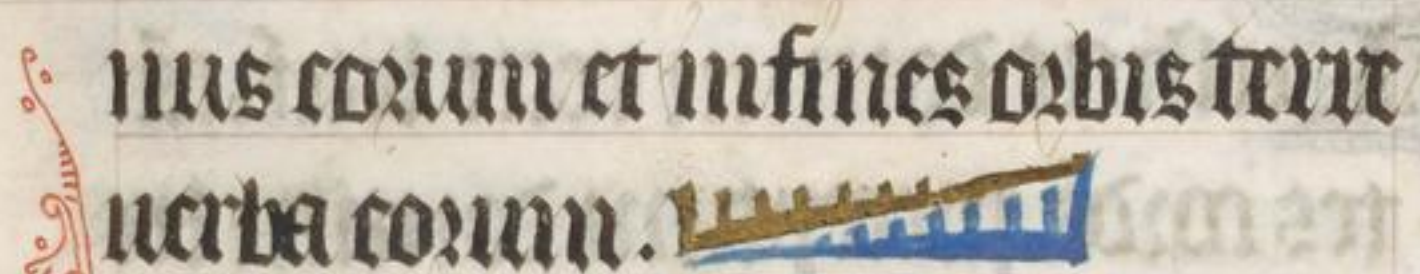 nus eorum et in fines orbis terre
uerba eorum.